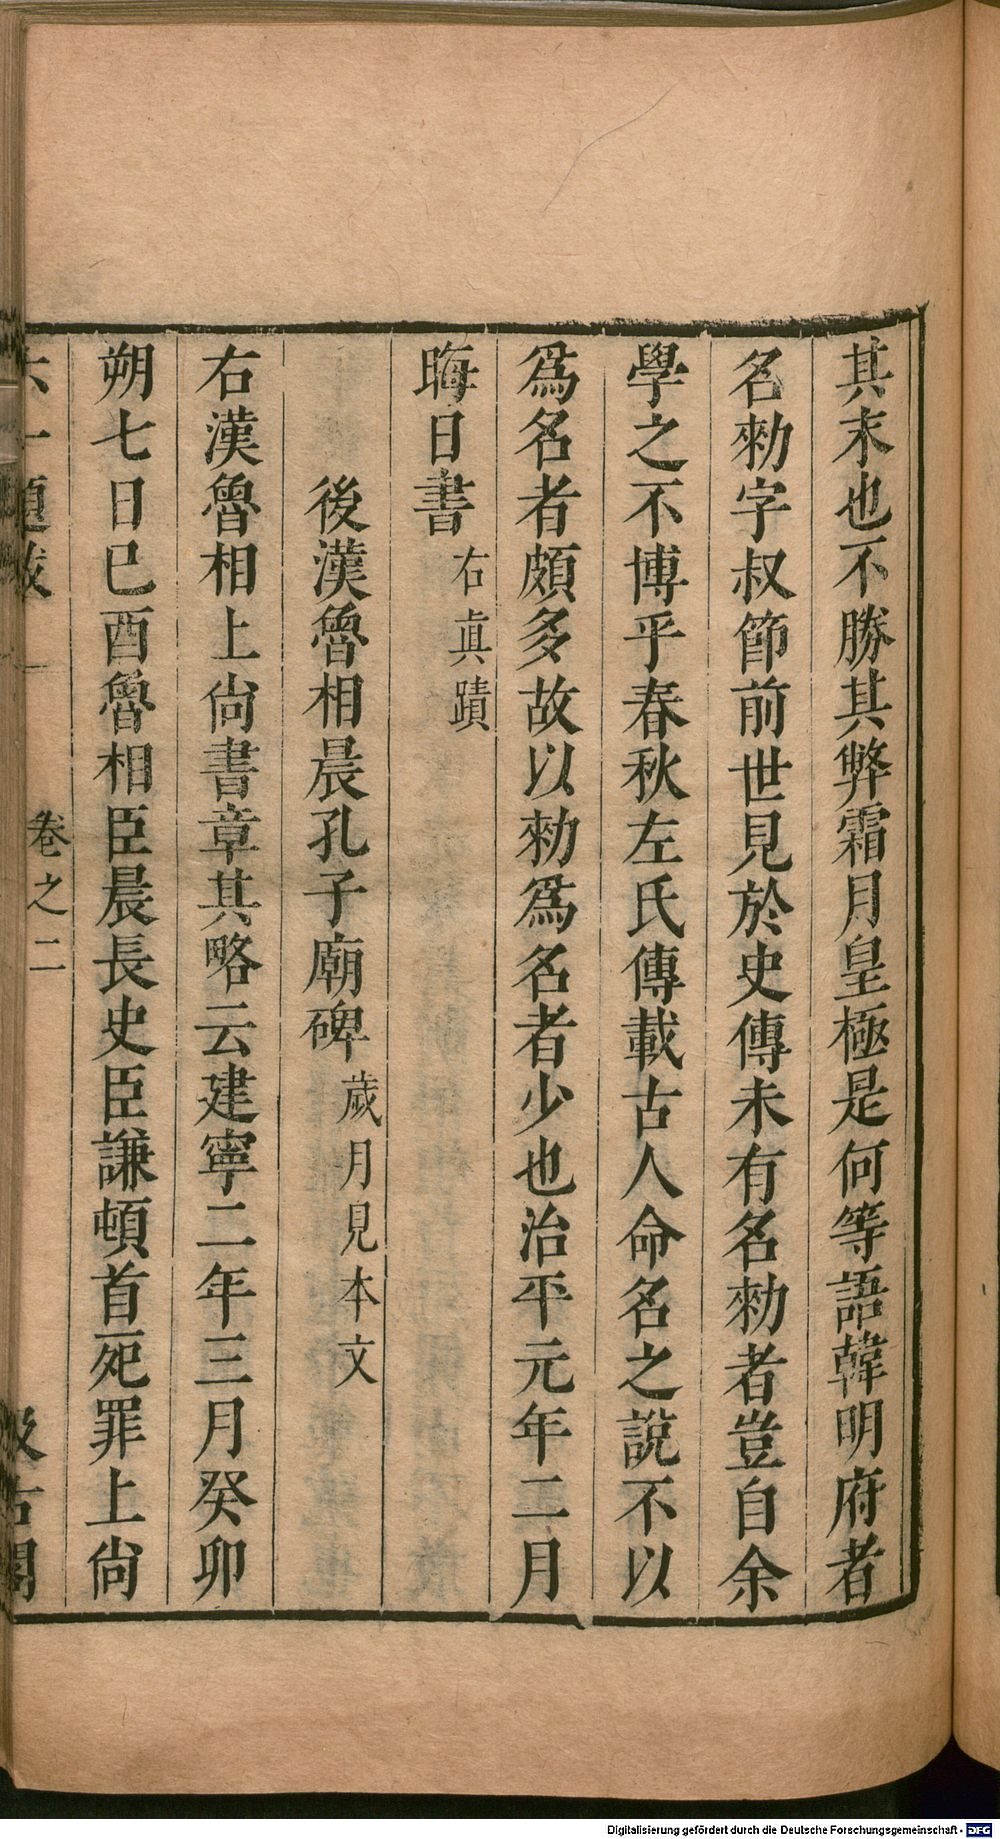 其末也不勝其弊霜月皇極是何等語韓明府者
名勑字叔節前世見於史傳未有名勑者豈自余
學之不博乎春秋左氏傳載古人命名之說不以
爲名者頗多故以勑爲名者少也治平元年二月
晦日書右真蹟
後漢魯相晨孔子廟碑歲月見本文
右漢魯相上尙書章其略云建寧二年三月癸卯
朔七日巳酉魯相臣晨長史臣謙頓首死罪上尙
六一題跋
卷之二
汲古閣
Digitalisierung gefördert durch die Deutsche Forschungsgemeinschaft - DFG